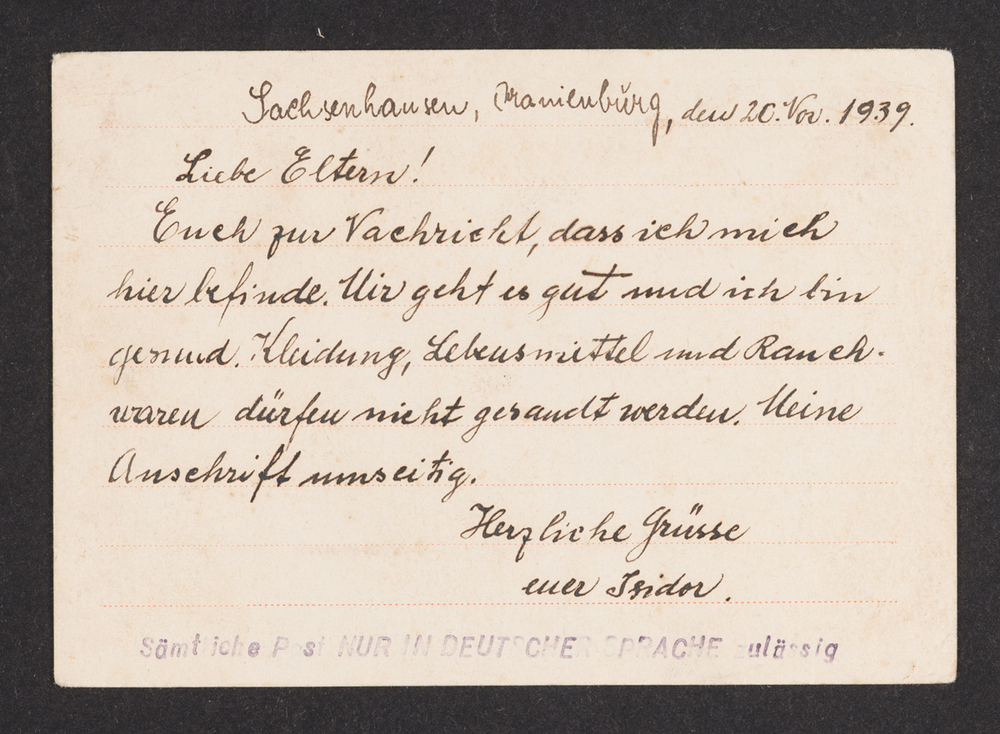 Sachsenhausen, Oranienburg, den 20. Nov. 1939.
Liebe Eltern!
Euch zur Nachricht, dass ich mich
hier befinde. Mir geht es gut und ich bin
gesund. Kleidung, Lebensmittel und Rauch-
waren dürfen nicht gesandt werden. Meine
Anschrift umseitig.
Herzliche Grüsse
euer Isidor.
Sämtliche Post NUR IN DEUTSCHER SPRACHE zulässig